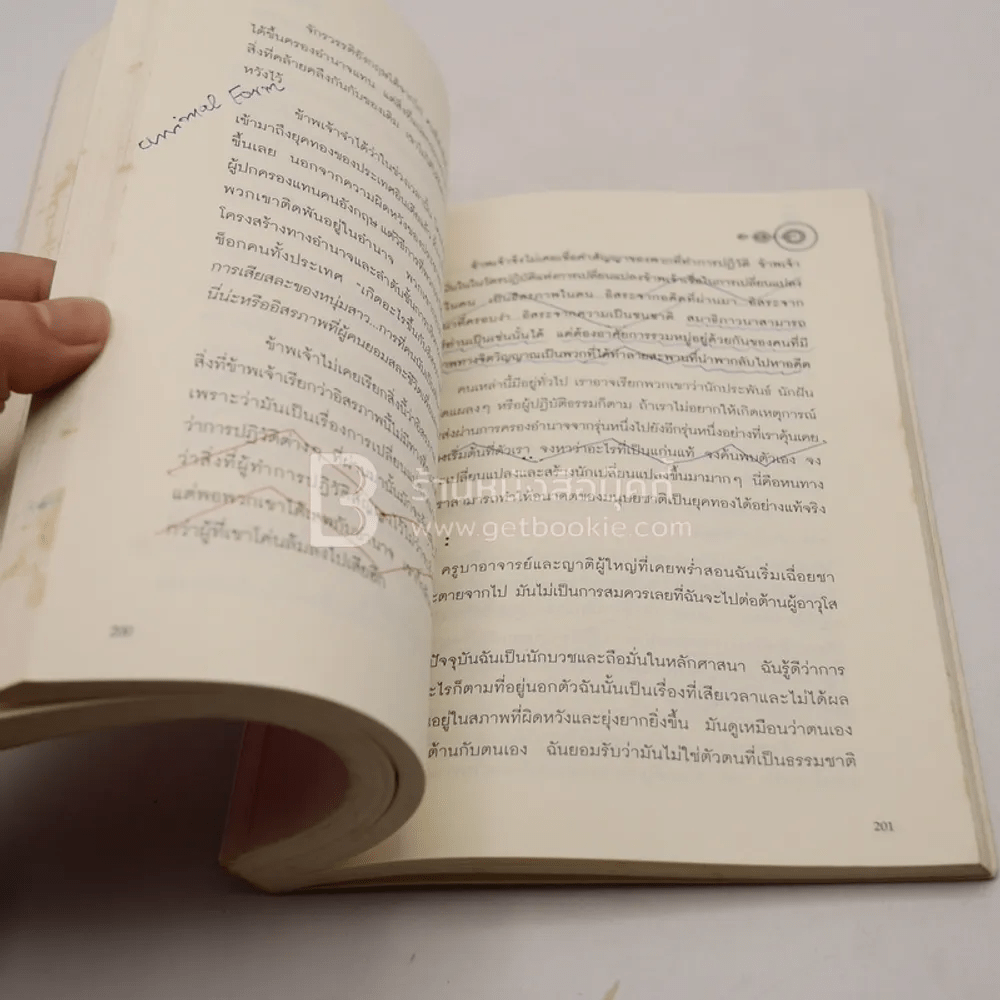 จักรวรรดิอังกฤษได้จากไป
ได้ขึ้นครองอำนาจแทน
สิ่งที่คล้ายคลึงกันกับของเดิม
หวังไว้
animal Farm
ข้าพเจ้าจำได้ว่าในช่วงเวลานั้น
เข้ามาถึงยุคทองของประเทศอินเดียแล้ว
ขึ้นเลย นอกจากความผิดหวังของประชา
ผู้ปกครองแทนคนอังกฤษ แต่วิธีการที่พวก
พวกเขาติดพันอยู่ในอำนาจ พวกเขา
โครงสร้างทางอำนาจและลำดับชั้นการ
ช็อกคนทั้งประเทศ "เกิดอะไรขึ้นกับ
การเสียสละของหนุ่มสาว...การที่คนนับ
นี่น่ะหรืออิสรภาพที่ผู้คนยอมสละชีวิตเพื่อ
ข้าพเจ้าไม่เคยเรียกสิ่งนี้ว่าอิสรภาพ
สิ่งที่ข้าพเจ้าเรียกว่าอิสรภาพนั้นไม่มี
เพราะว่ามันเป็นเรื่องการเปลี่ยน
ว่าการปฏิวัติต่างๆ ที่ผ่านมานั้น
ว่าสิ่งที่ผู้ทำการปฏิวัติ
แต่พอพวกเขาได้ อำนาจ
กว่าผู้ที่เขาโค่นล้มลงไปเสียอีก
200
ข้าพเจ้าจึงไม่เคยเชื่อคำสัญญาของพวกที่ทำการปฏิวัติ ข้าพเจ้า
การเปลี่ยนแปลง ข้าพเจ้าเชื่อในการเปลี่ยนแปลง
ในคน เป็นอิสรภาพในคน อิสระจากอคติที่ผ่านมา อิสระจาก
นาที่ครอบงำ อิสระจากความเป็นชนชาติ สมาธิภาวนาสามารถ
ท่านเป็นเช่นนั้นได้ แต่ต้องอาศัยการรวมหมู่อยู่ด้วยกันของคนที่มี
พทางจิตวิญญาณเป็นพวกที่ได้ทำลายสะพานที่นำพากลับไปหาอดีต
คนเหล่านี้มีอยู่ทั่วไป เราอาจเรียกพวกเขาว่านักประพันธ์ นักฝัน
ดแผลงๆ หรือผู้ปฏิบัติธรรมก็ตาม ถ้าเราไม่อยากให้เกิดเหตุการณ์
ส่งผ่านการครองอำนาจจากรุ่นหนึ่งไปยังอีกรุ่นหนึ่งอย่างที่เราคุ้นเคย
งเริ่มต้นที่ตัวเรา จงหาว่าอะไรที่เป็นแก่นแท้ จงค้นพบตัวเอง จง
เปลี่ยนแปลงและสร้างนักเปลี่ยนแปลงขึ้นมามากๆ นี่คือหนทาง
ราสามารถทำให้อนาคตของมนุษยชาติเป็นยุคทองได้อย่างแท้จริง
ร้านหนังสือบุ๊คกี้
www.getbookie.com
:
ครูบาอาจารย์และญาติผู้ใหญ่ที่เคยพร่ำสอนฉันเริ่มเฉื่อยชา
ะตายจากไป มันไม่เป็นการสมควรเลยที่ฉันจะไปต่อต้านผู้อาวุโส
ปัจจุบันฉันเป็นนักบวชและถือมั่นในหลักศาสนา ฉันรู้ดีว่าการ
ะไรก็ตามที่อยู่นอกตัวฉันนั้นเป็นเรื่องที่เสียเวลาและไม่ได้ผล
นอยู่ในสภาพที่ผิดหวังและยุ่งยากยิ่งขึ้น มันดูเหมือนว่าตนเอง
ต้านกับตนเอง ฉันยอมรับว่ามันไม่ใช่ตัวตนที่เป็นธรรมชาติ
201